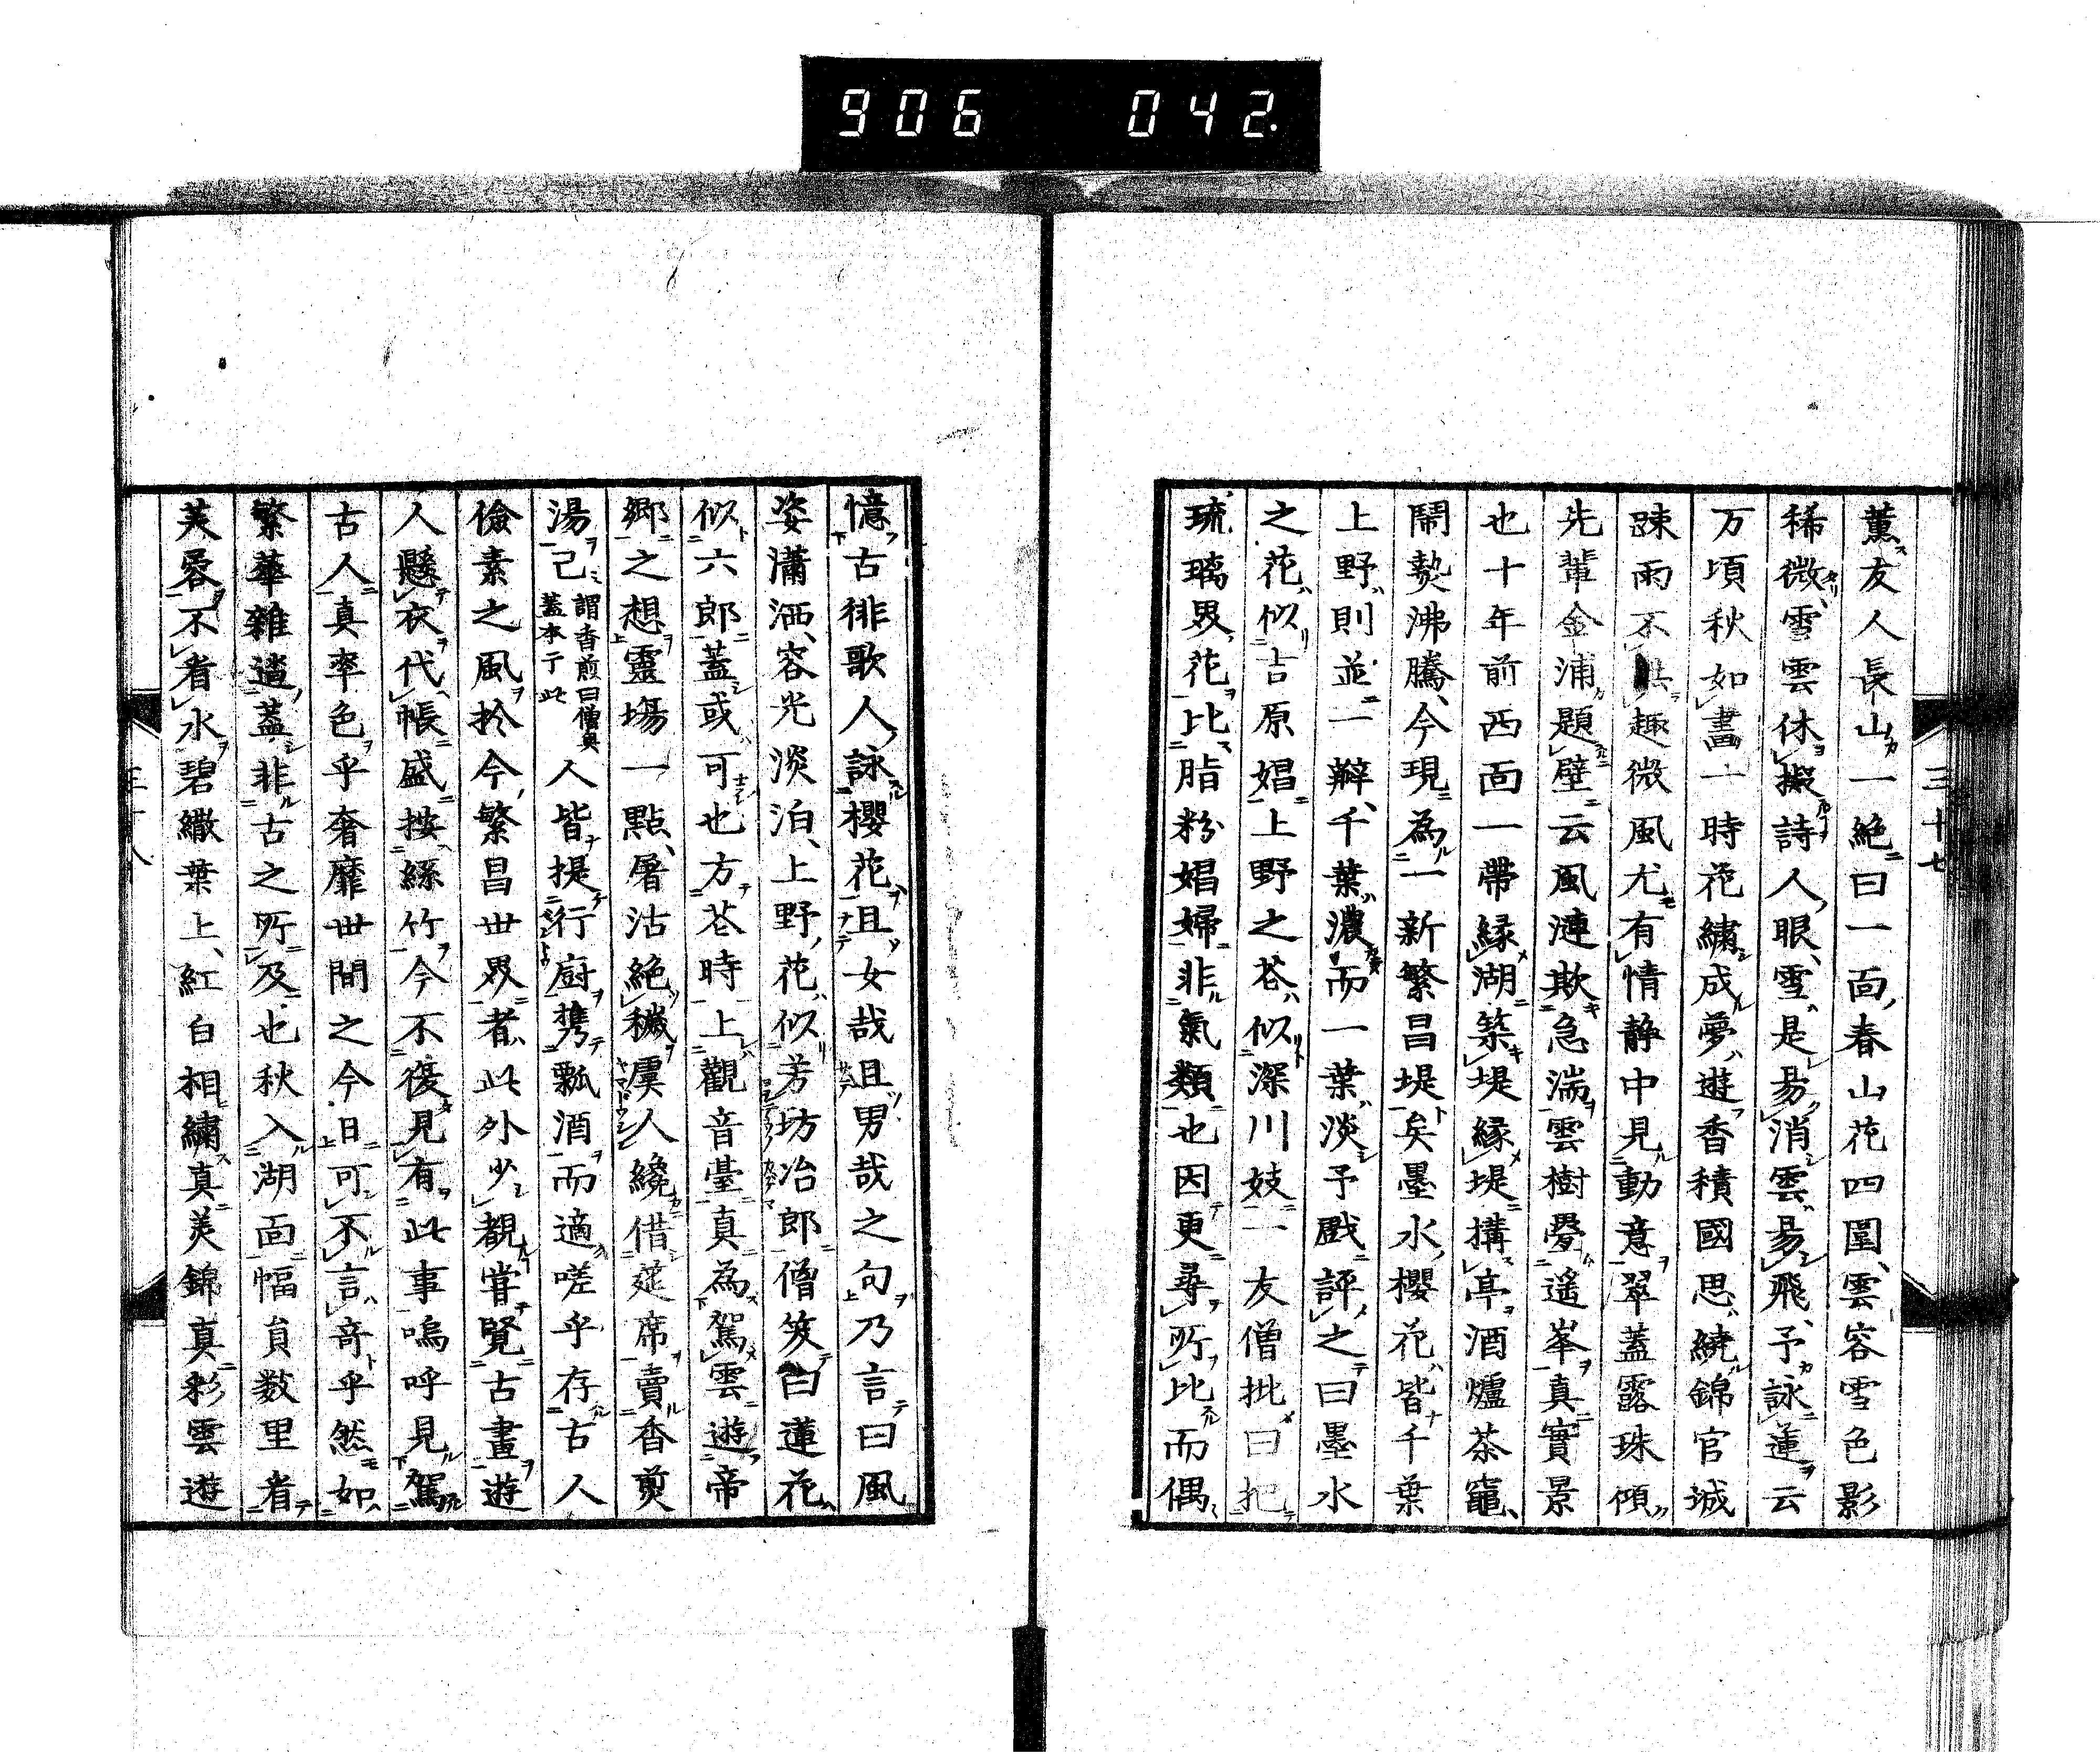 906 042.
三十七
薫友人長山一絶曰一面春山花四圍雲容雪色影
稀微雪雲休擬詩人眼雪是易消雲易飛予詠蓮云
万頃秋如畫一時花繍成夢遊香積國思繞錦官城
踈雨不趣微風尤有情静中見動意翠蓋露珠傾
先輩金浦題壁云風漣欺急湍雲樹疊遙峯真實景
也十年前西面一帶縁湖築堤縁堤搆亭酒爐茶竈
鬧熱沸騰今現為一新繁昌堤矣墨水櫻花皆千葉
上野則並一瓣千葉濃而一葉淡予戯評之曰墨水
之花似吉原娼上野之花似深川妓一友僧批曰把
琉璃界花比脂粉娼婦非氣類也因更尋所比而偶
憶古徘歌人詠櫻花且女哉且男哉之句乃言曰風
姿瀟洒容光淡泊上野花似芳坊冶郎僧笑曰蓮花
似六郎蓋或可也方花時上觀音臺真為駕雲遊帝
郷之想靈塲一點屠沽絶穢虞人纔借莚席賣香煎
湯己謂香煎曰僧奥蓋本于此人皆提行廚携瓢酒而適嗟乎存古人
儉素之風於今繁昌世界者此外少覩嘗覽古畫遊
人懸衣代帳盛按絲竹今不復見有此事嗚呼見駕
古人真率色乎奢靡世間之今日可不言奇乎然如
繁華雜遝蓋非古之所及也秋入湖面幅員数里者
芙蓉不者水碧繖葉上紅白相繍真美錦真彩雲遊